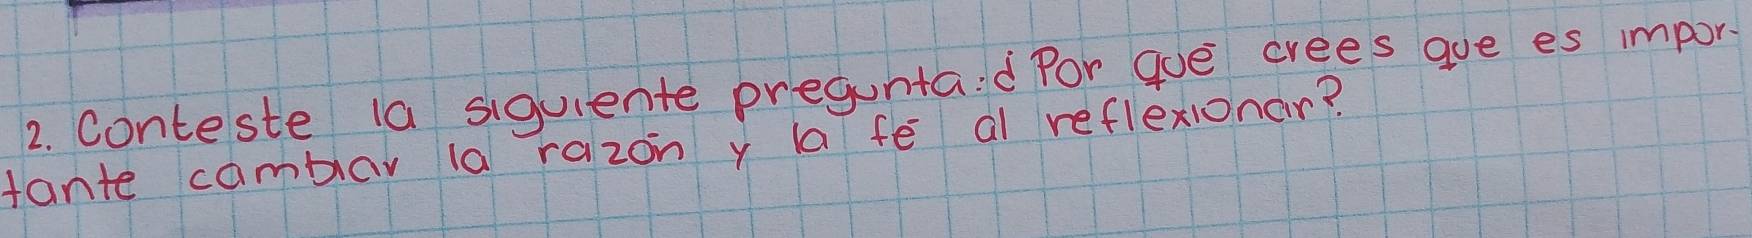 2. Conteste la siguiente pregunta: ¿Por qué crees que es impor-
tante cambiar la razón y la fé al reflexionar?